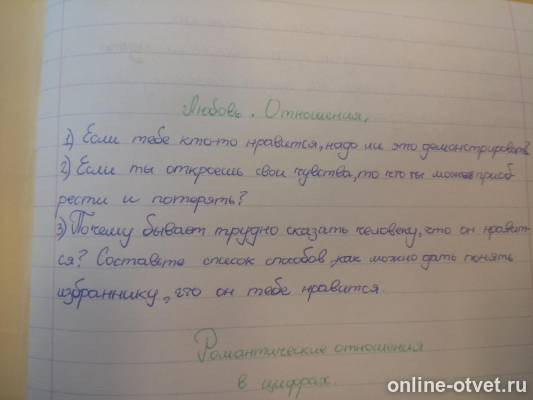 Любовь. Отношения.
1) Если тебе кто-то нравится, надо ли это демонстрировать
2) Если ты откроешь свои чувства, то что ты можешь приоб
рести и потерять?
3) Почему бывает трудно сказать человеку, что он нравит-
ся? Составьте список способов, как можно дать понять
избраннику, что он тебе нравится.
Романтические отношения
в цифрах.
online-otvet.ru